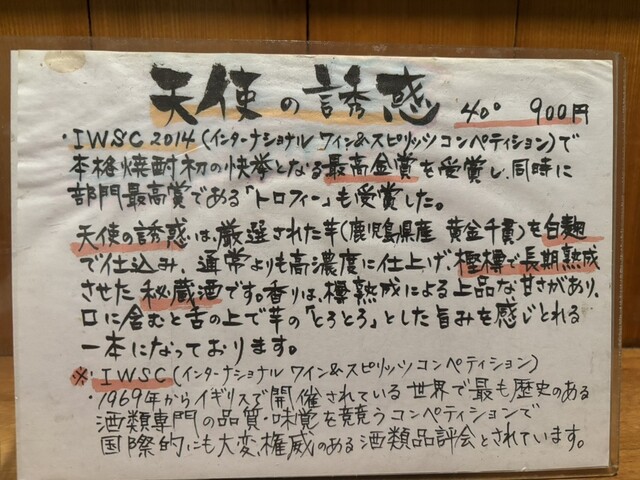 天使の誘惑 40° 900円
・IWSC 2014(インターナショナル ワイン&スピリッツ コンペティション)で
本格焼酎初の快挙となる最高金賞を受賞し、同時に
部門最高賞である「トロフィー」も受賞した。
天使の誘惑は、厳選された芋(鹿児島県産 黄金千貫)を白麹
で仕込み、通常よりも高濃度に仕上げ、樫樽で長期熟成
させた秘蔵酒です。香りは、樽熟成による上品な甘さがあり、
口に含むと舌の上で芋の「とろとろ」とした旨みを感じとれる
一本になっております。
※IWSC(インターナショナル ワイン&スピリッツ コンペティション)
・1969年からイギリスで開催されている世界で最も歴史のある
酒類専門の品質・味覚を競うコンペティションで
国際的にも大変、権威のある酒類品評会とされています。